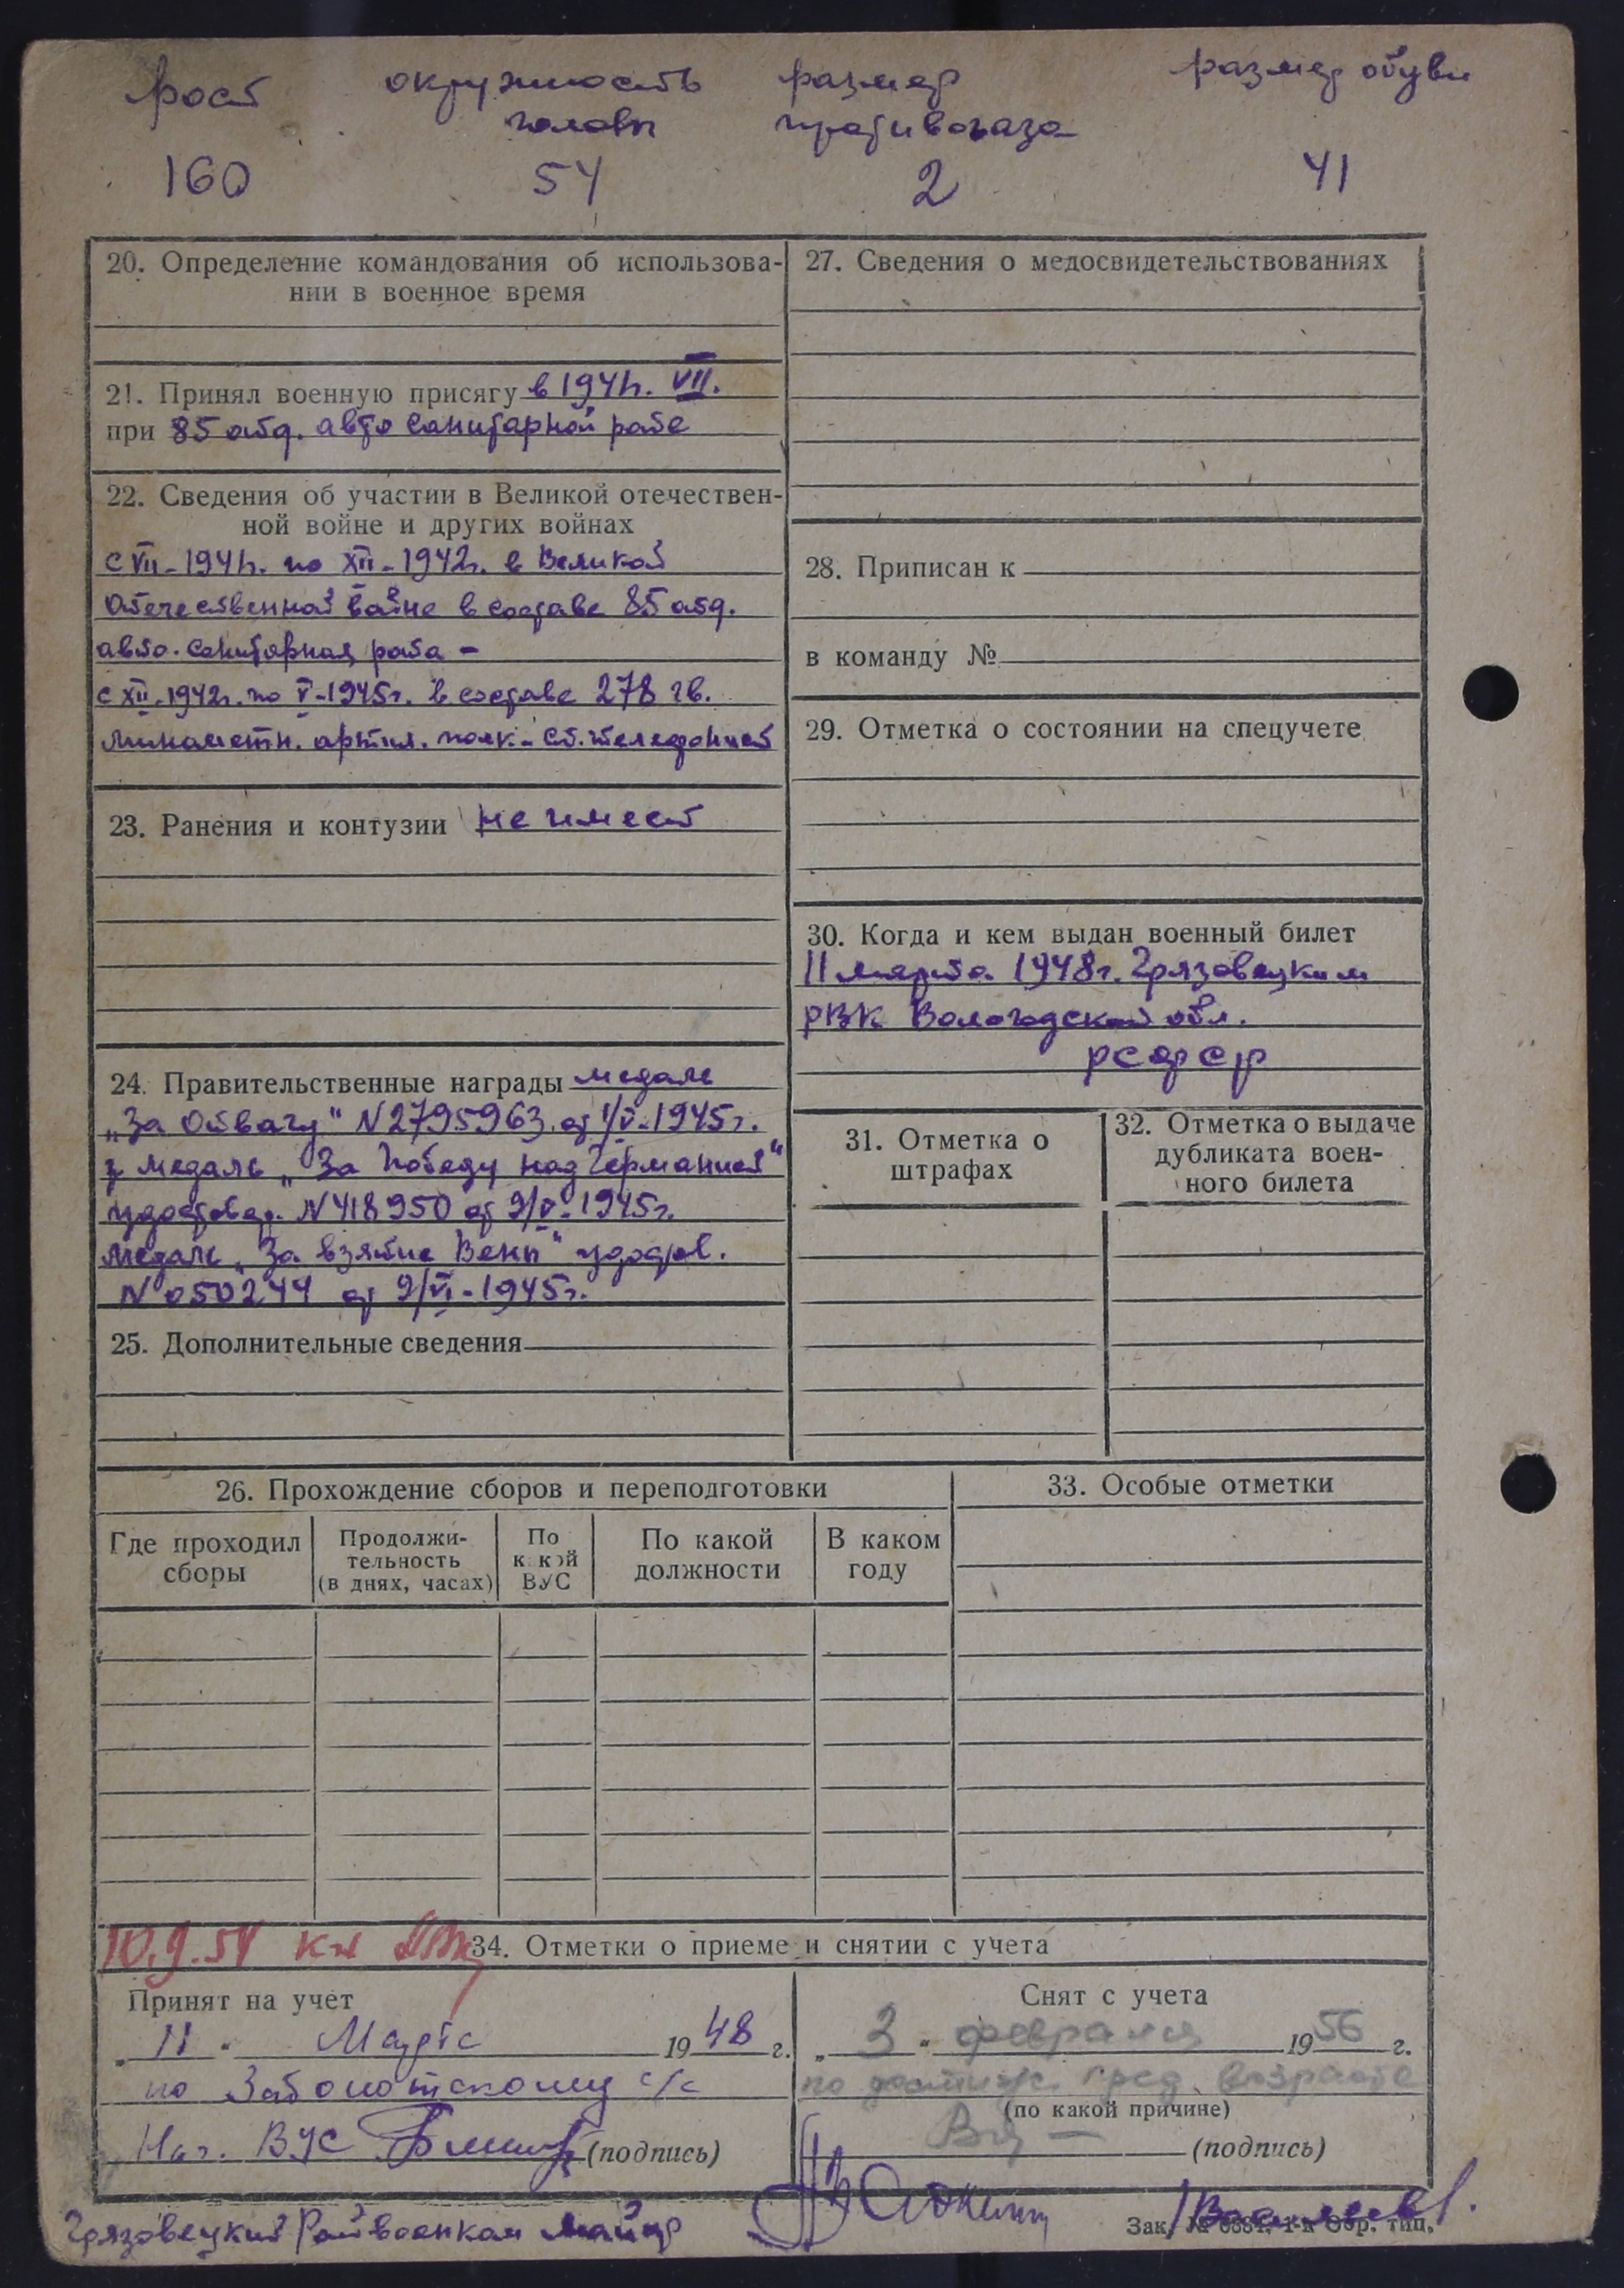 рост окружность размер размер обуви
головы противогаза
160 54 2 41
20. Определение командования об использова-
нии в военное время
21. Принял военную присягу в 1941г. VII.
при 85 отд. авто санитарной роте
22. Сведения об участии в Великой отечествен-
ной войне и других войнах
с VII-1941г. по XII-1942г. в Великой
Отечественной войне в составе 85 отд.
авто. санитарная рота -
с XII-1942г. по V-1945г. в составе 278 гв.
минометн. артил. полк. - ст. телефонист
23. Ранения и контузии не имеет
24. Правительственные награды медаль
„За Отвагу" N 2795963 от 1/V-1945г.
медаль „За Победу над Германией"
удостовер. N 418950 от 9/V-1945г.
медаль „За взятие Вены" удостов.
N 050244 от 9/VI-1945г.
25. Дополнительные сведения
27. Сведения о медосвидетельствованиях
28. Приписан к
в команду №
29. Отметка о состоянии на спецучете
30. Когда и кем выдан военный билет
11 марта 1948г. Грязовецким
РВК Вологодской обл.
РСФСР
31. Отметка о
штрафах
32. Отметка о выдаче
дубликата воен-
ного билета
26. Прохождение сборов и переподготовки
Где проходил
сборы
Продолжи-
тельность
(в днях, часах)
По
какой
ВУС
По какой
должности
В каком
году
33. Особые отметки
10.9.54
34. Отметки о приеме и снятии с учета
Принят на учет
„11" Марта 1948 г.
по Заболотскому с/с
Нач. ВУС (подпись)
Снят с учета
„3" февраля 1956 г.
по достиж. пред. возраста
(по какой причине)
(подпись)
Грязовецкий Райвоенком Майор
Зак. № тип.